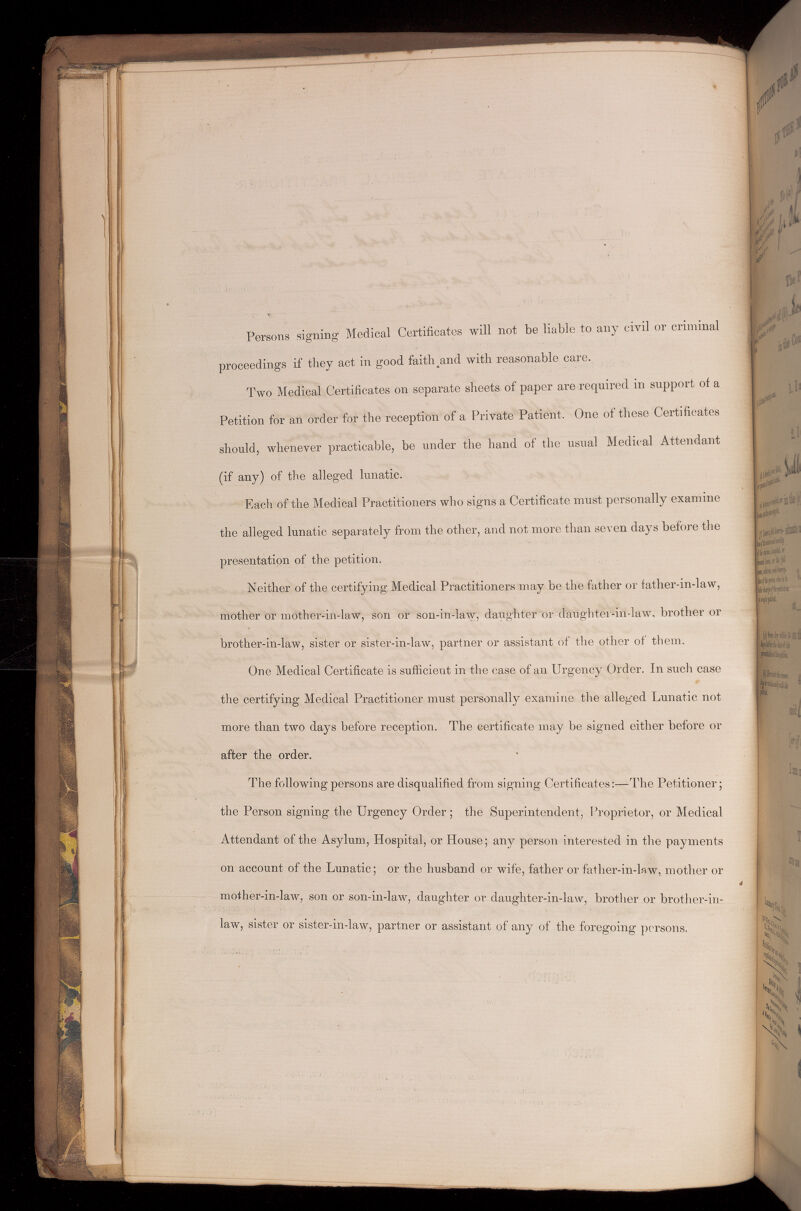 Persons signing Medical Certificates will not be liable to any civil or criminal
proceedings if they act in good faith and with reasonable care.
Two Medical Certificates on separate sheets of paper are required in support of a
Petition for an order for the reception of a Private Patient. One of these Certificates
should, whenever practicable, be under the hand of the usual Medical Attendant
(if any) of the alleged lunatic.
Each of the Medical Practitioners who signs a Certificate must personally examine
the alleged lunatic separately from the other, and not more than seven days before the
presentation of the petition.
Neither of the certifying Medical Practitioners may be the father or father-in-law,
mother or mother-in-law, son or son-in-law, daughter or daughter-in-law, brother or
brother-in-law, sister or sister-in-law, partner or assistant of the other of them.
One Medical Certificate is sufficient in the case of an Urgency Order. In such case
the certifying Medical Practitioner must personally examine the alleged Lunatic not
more than two days before reception. The certificate may be signed either before or
after the order.
The following persons are disqualified from signing Certificates:—The Petitioner;
the Person signing the Urgency Order; the Superintendent, Proprietor, or Medical
Attendant of the Asylum, Hospital, or House; any person interested in the payments
on account of the Lunatic; or the husband or wife, father or father-in-law, mother or
mother-in-law, son or son-in-law, daughter or daughter-in-law, brother or brother-in-
law, sister or sister-in-law, partner or assistant of any of the foregoing persons.